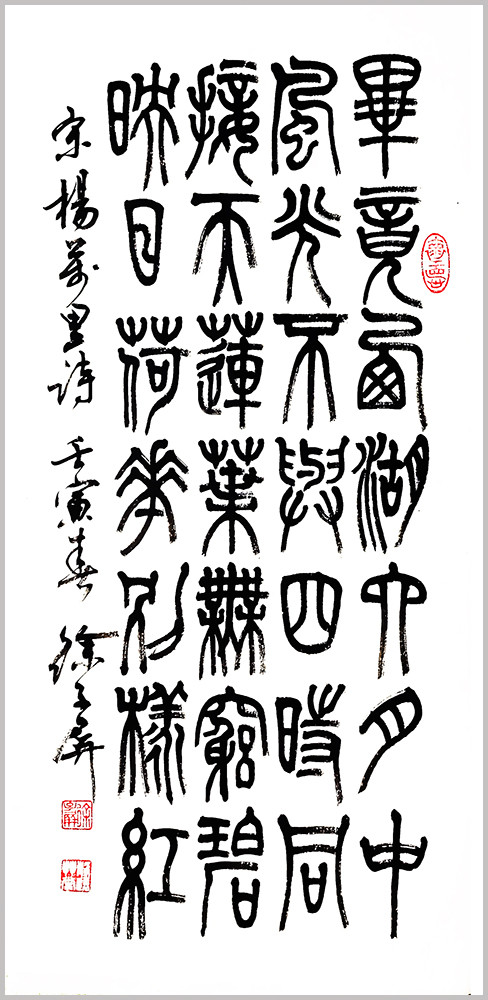 畢竟西湖六月中
風光不與四時同
接天蓮葉無窮碧
映日荷花別樣紅
宋楊萬里詩 壬寅春 徐